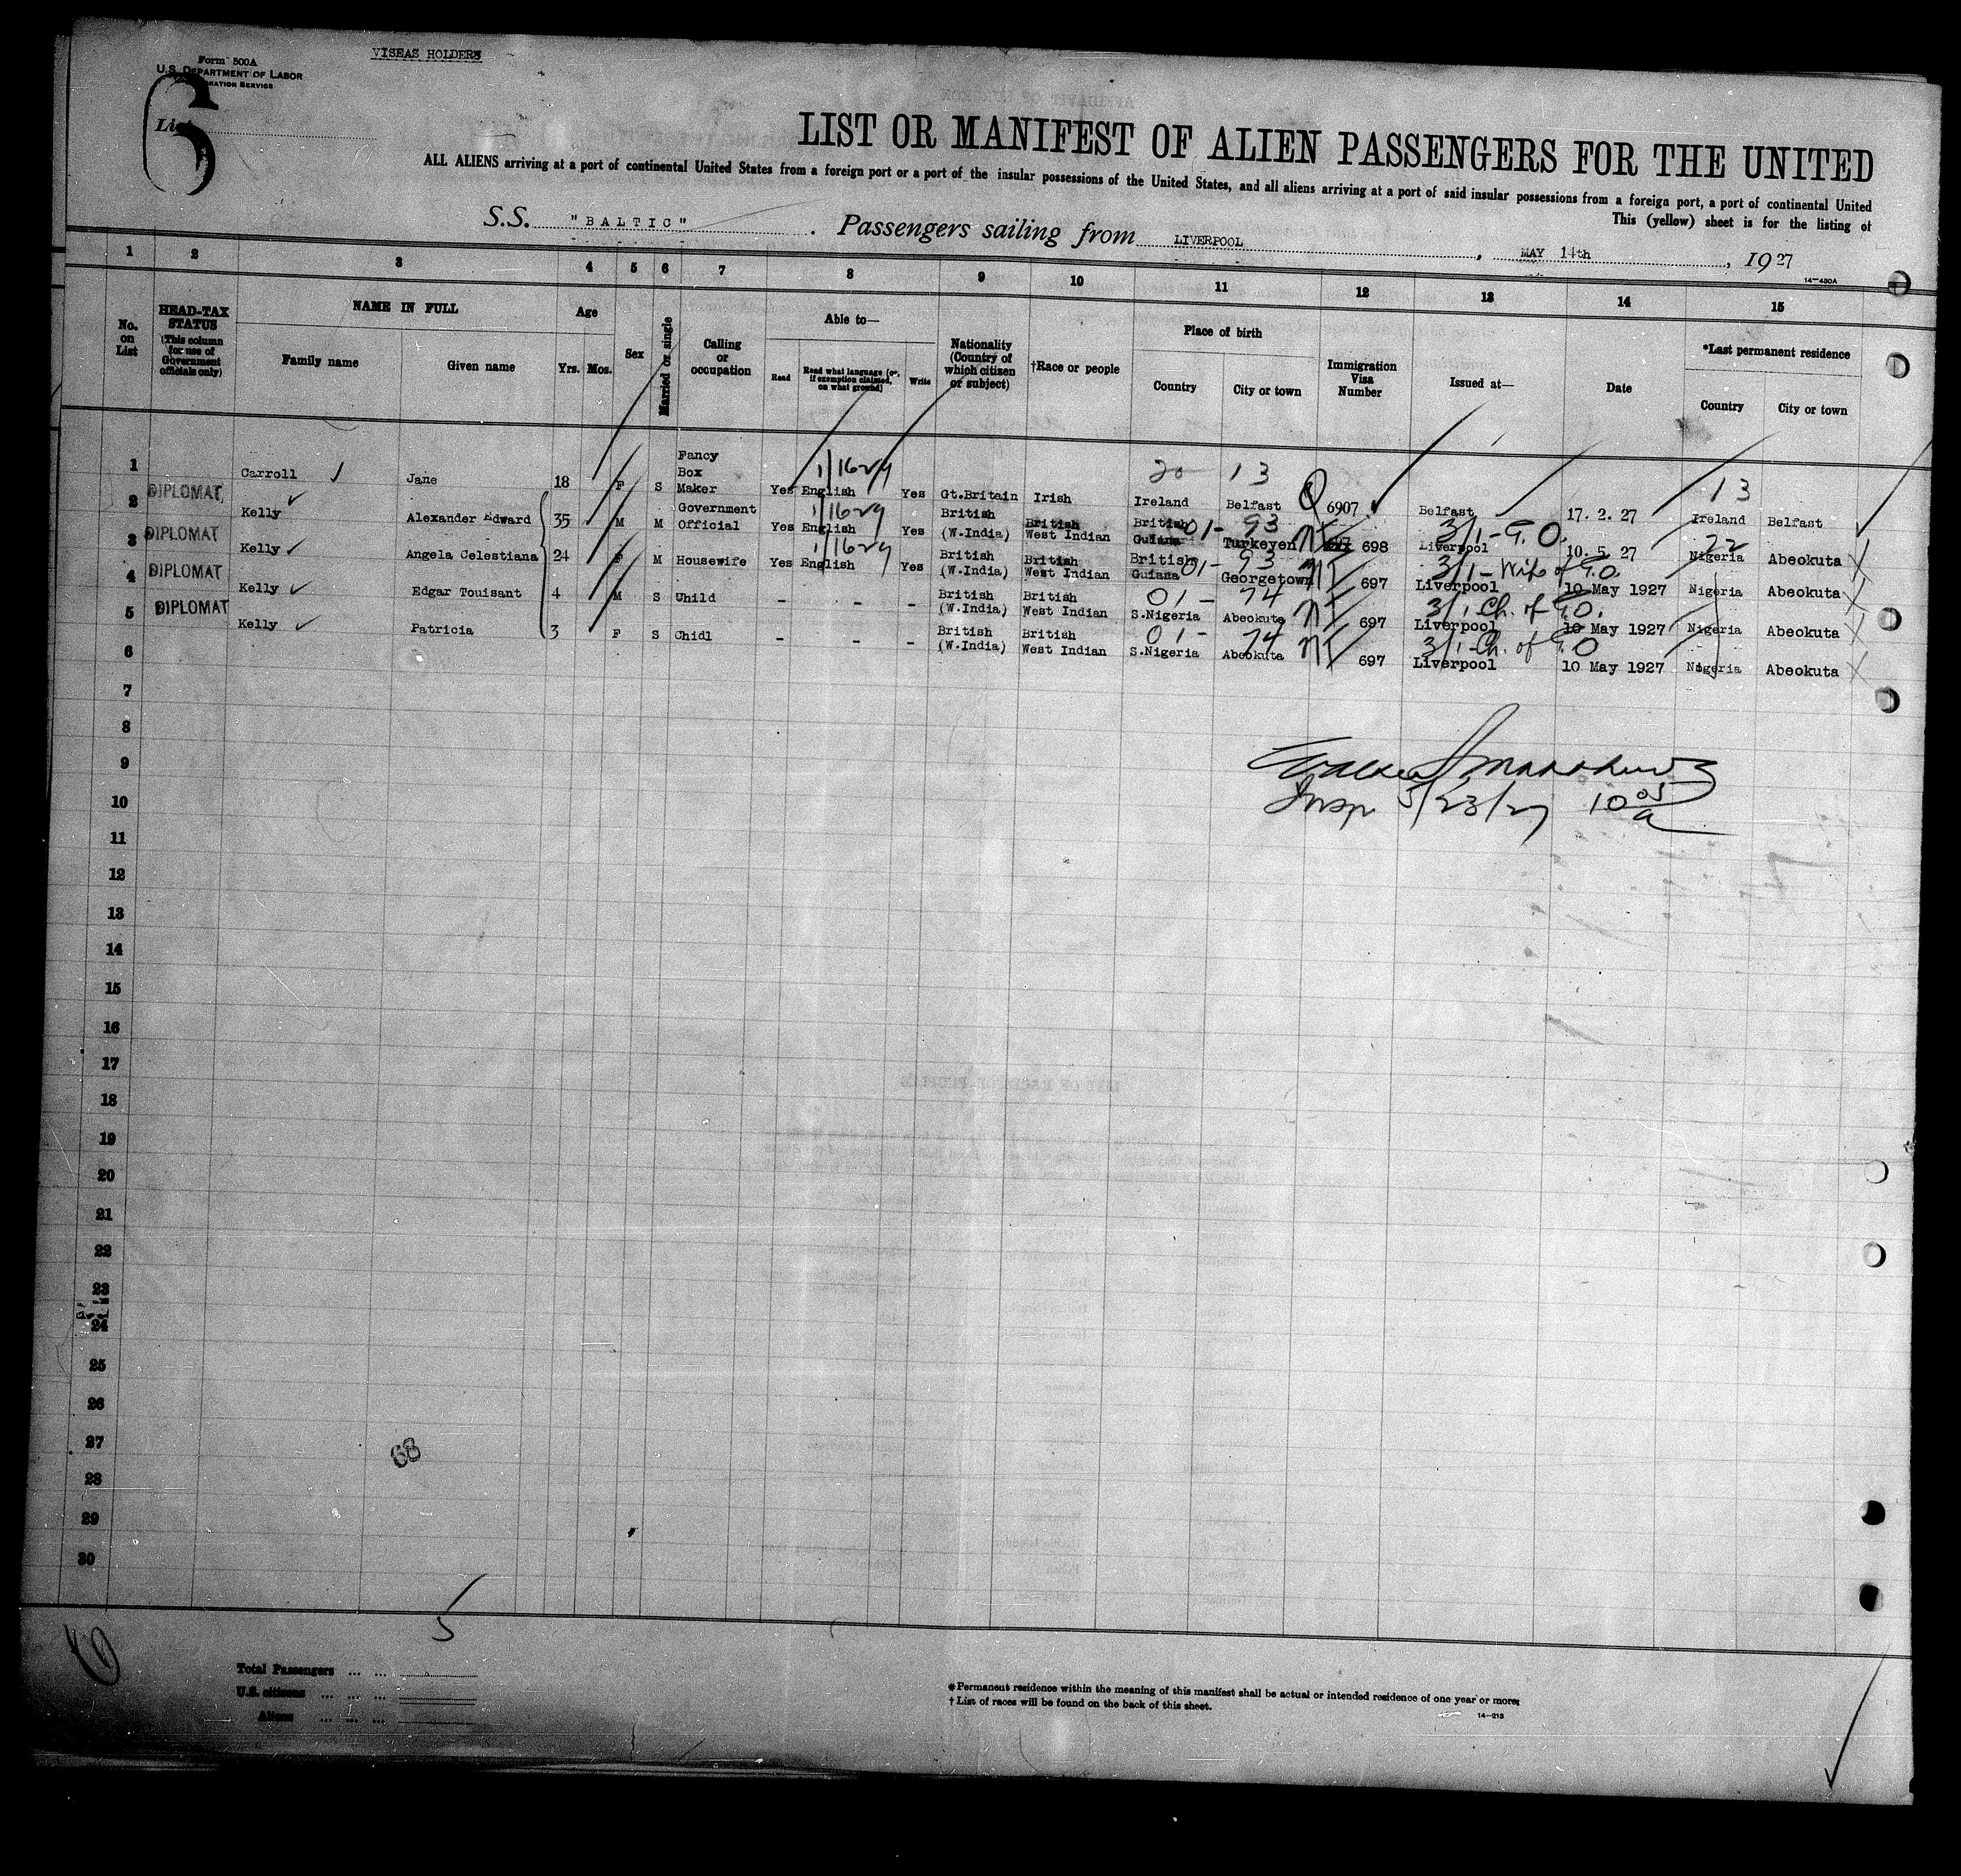 VISEAS HOLDERS
Form 500A
U.S. DEPARTMENT OF LABOR
IMMIGRATION SERVICE
6
List
LIST OR MANIFEST OF ALIEN PASSENGERS FOR THE UNITED
ALL ALIENS arriving at a port of continental United States from a foreign port or a port of the insular possessions of the United States, and all aliens arriving at a port of said insular possessions from a foreign port, a port of continental United
This (yellow) sheet is for the listing of
S.S. "BALTIC" . Passengers sailing from LIVERPOOL , MAY 14th , 1927
14-430A
1 2 3 4 5 6 7 8 9 10 11 12 13 14 15
No. on List
HEAD-TAX STATUS (This column for use of Government officials only)
NAME IN FULL
Family name Given name
Age
Yrs. Mos.
Sex
Married or single
Calling or occupation
Able to—
Read Read what language (or, if exemption claimed, on what ground) Write
Nationality (Country of which citizen or subject)
†Race or people
Place of birth
Country City or town
Immigration Visa Number
Issued at—
Date
*Last permanent residence
Country City or town
1/1629 20 13 13
1 Carroll Jane 18 F S Fancy Box Maker Yes English Yes Gt.Britain Irish Ireland Belfast Q 6907 Belfast 17. 2. 27 Ireland Belfast
1/1629 01- 93 3/1-G.O. 72
2 DIPLOMAT, Kelly Alexander Edward 35 M M Government Official Yes English Yes British (W.India) British West Indian British Guiana Turkeyen NI 698 Liverpool 10. 5. 27 Nigeria Abeokuta
1/1629 01- 93 3/1-Wife of G.O.
3 DIPLOMAT Kelly Angela Celestiana 24 F M Housewife Yes English Yes British (W.India) British West Indian British Guiana Georgetown NI 697 Liverpool 10 May 1927 Nigeria Abeokuta
01- 74 3/1-Ch. of G.O.
4 DIPLOMAT Kelly Edgar Touisant 4 M S Child - - - British (W.India) British West Indian S.Nigeria Abeokuta NI 697 Liverpool 10 May 1927 Nigeria Abeokuta
01- 74 3/1-Ch. of G.O
5 DIPLOMAT Kelly Patricia 3 F S Chidl - - - British (W.India) British West Indian S.Nigeria Abeokuta NI 697 Liverpool 10 May 1927 Nigeria Abeokuta
6
7
8
9
Insp 5/23/27 10 05 a
10
11
12
13
14
15
16
17
18
19
20
21
22
23
24
25
26
27
68
28
29
30
5
Total Passengers ... ...
U.S. citizens ... ... ...
Aliens ... ... ...
*Permanent residence within the meaning of this manifest shall be actual or intended residence of one year or more.
†List of races will be found on the back of this sheet.
14-213